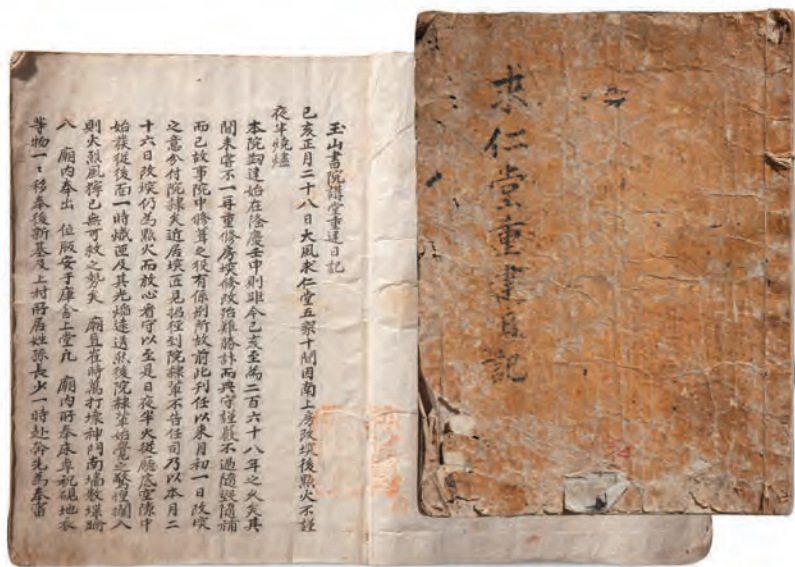 求仁堂重建日記
玉山書院講堂重建日記
己亥正月二十八日大風求仁堂五樑十間因南上房改堗後點火不謹
夜半燒燼
本院刱建始在隆慶壬申則距今己亥至為二百六十八年之久矣其
間未嘗不一再重修房堗修改治難勝計而典守謹嚴不過隨毁隨補
而已故事院中修葺之役有係則所故前此列任以來月初一日改突
之意分付院隸矣近居堗匠見招徑到院隸輩不告任司乃以本月二
十六日改堗仍為點火而放心看守以至是日夜半火從廳底空隙中
始發從後面一時熾逼及其光焰遠透然後院隸輩始覺之驚惶攔入
則火烈風獰已無可救之勢矣 廟直崔時萬打壞神門南墻數堞踰
入 廟内奉出 位版安于庫舍上堂凡 廟内所奉床卓祝硯地衣
等物一〻移奉後新基及上村所居姓孫長少一時赴 先為奉審